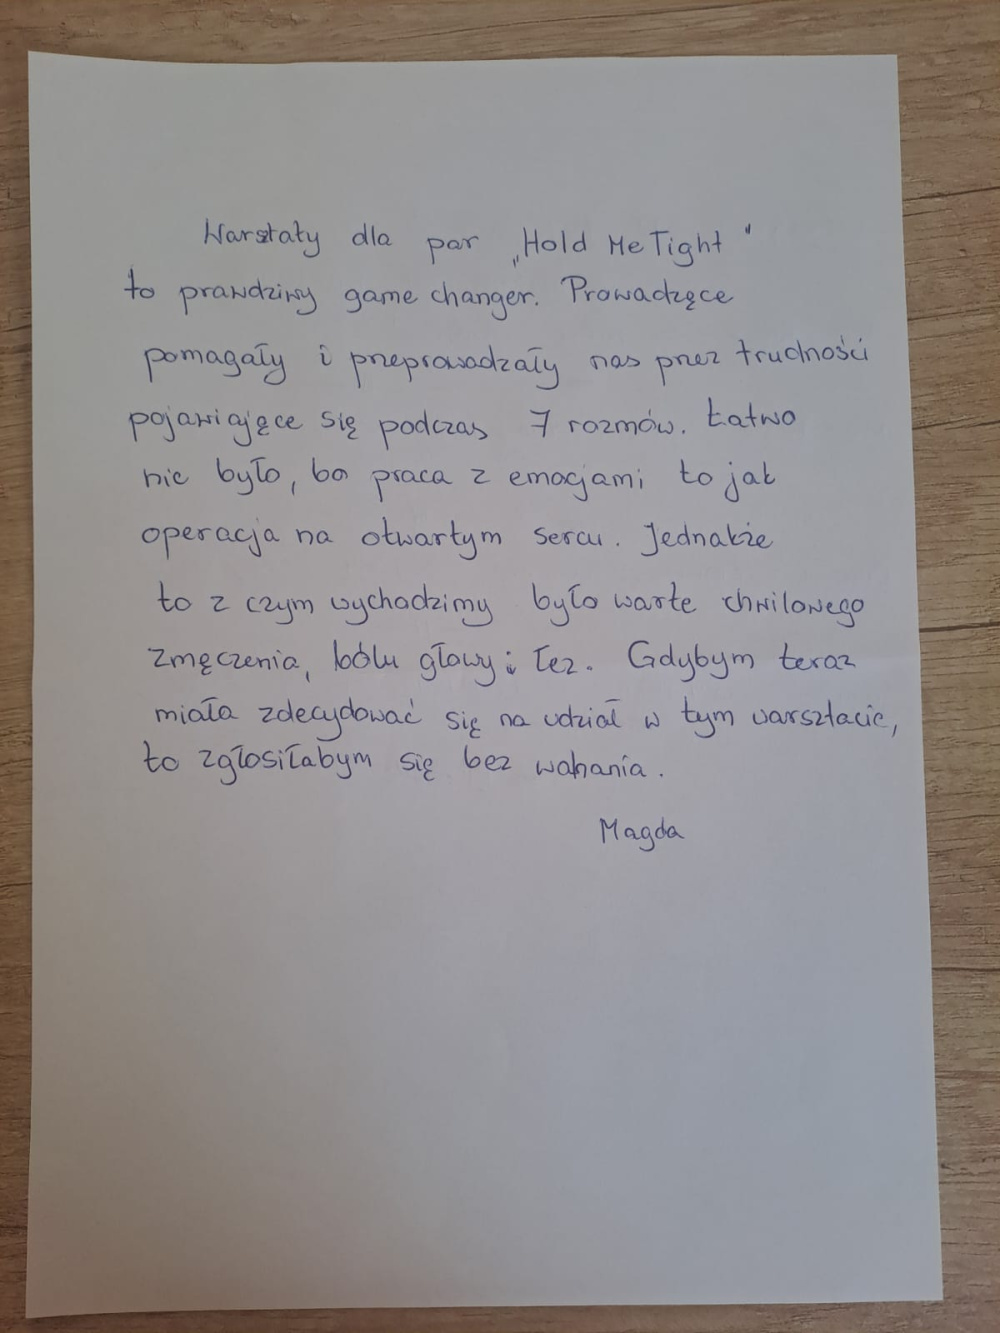 Warsztaty dla par „Hold Me Tight"
to prawdziwy game changer. Prowadzące
pomagały i przeprowadzały nas przez trudności
pojawiające się podczas 7 rozmów. Łatwo
nie było, bo praca z emocjami to jak
operacja na otwartym sercu. Jednakże
to z czym wychodzimy było warte chwilowego
zmęczenia, bólu głowy i łez. Gdybym teraz
miała zdecydować się na udział w tym warsztacie,
to zgłosiłabym się bez wahania.
Magda